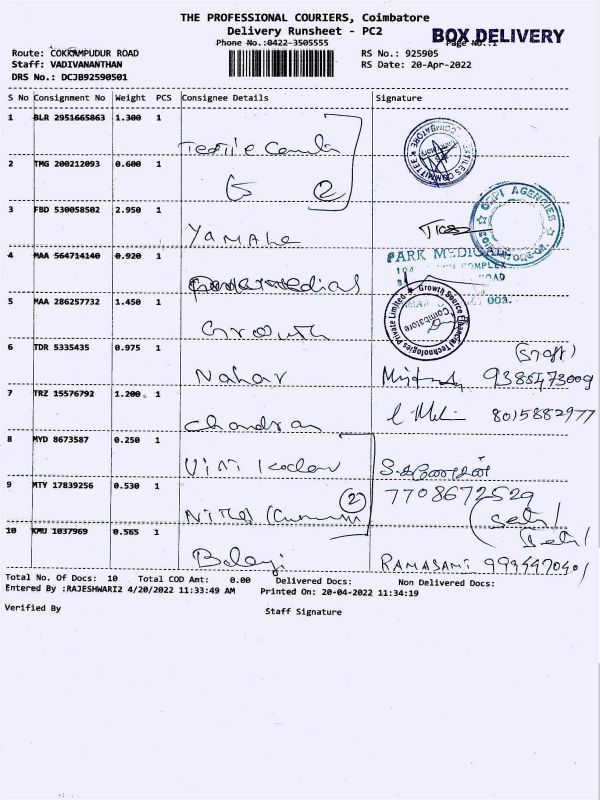 THE PROFESSIONAL COURIERS, Coimbatore
Delivery Runsheet - PC2
BOX DELIVERY
Phone No.:0422-3505555
Page No.:1
Route: COKKAMPUDUR ROAD
RS No.: 925905
Staff: VADIVANANTHAN
RS Date: 20-Apr-2022
DRS No.: DCJB92590501
S No Consignment No Weight PCS Consignee Details Signature
1 BLR 2951665863 1.300 1
TEXTILES COMMITTEE COIMBATORE
2 TMG 200212093 0.600 1
3 FBD 530058502 2.950 1 Yamaha
AGENCIES
4 MAA 564714140 0.920 1
PARK MEDICALS
COMPLEX
ROAD
5 MAA 286257732 1.450 1 Growth
Growth Source Financial Technologies Private Limited
Coimbatore
6 TDR 5335435 0.975 1 Nahar
(Staff)
9385473009
7 TRZ 15576792 1.200 1 Chandran
8015882977
8 MYD 8673587 0.250 1
9 MTY 17839256 0.530 1
7708672529
2
10 KMU 1037969 0.565 1 Balaji
RAMASAMI
Total No. Of Docs: 10 Total COD Amt: 0.00 Delivered Docs: Non Delivered Docs:
Entered By :RAJESHWARI2 4/20/2022 11:33:49 AM Printed On: 20-04-2022 11:34:19
Verified By Staff Signature